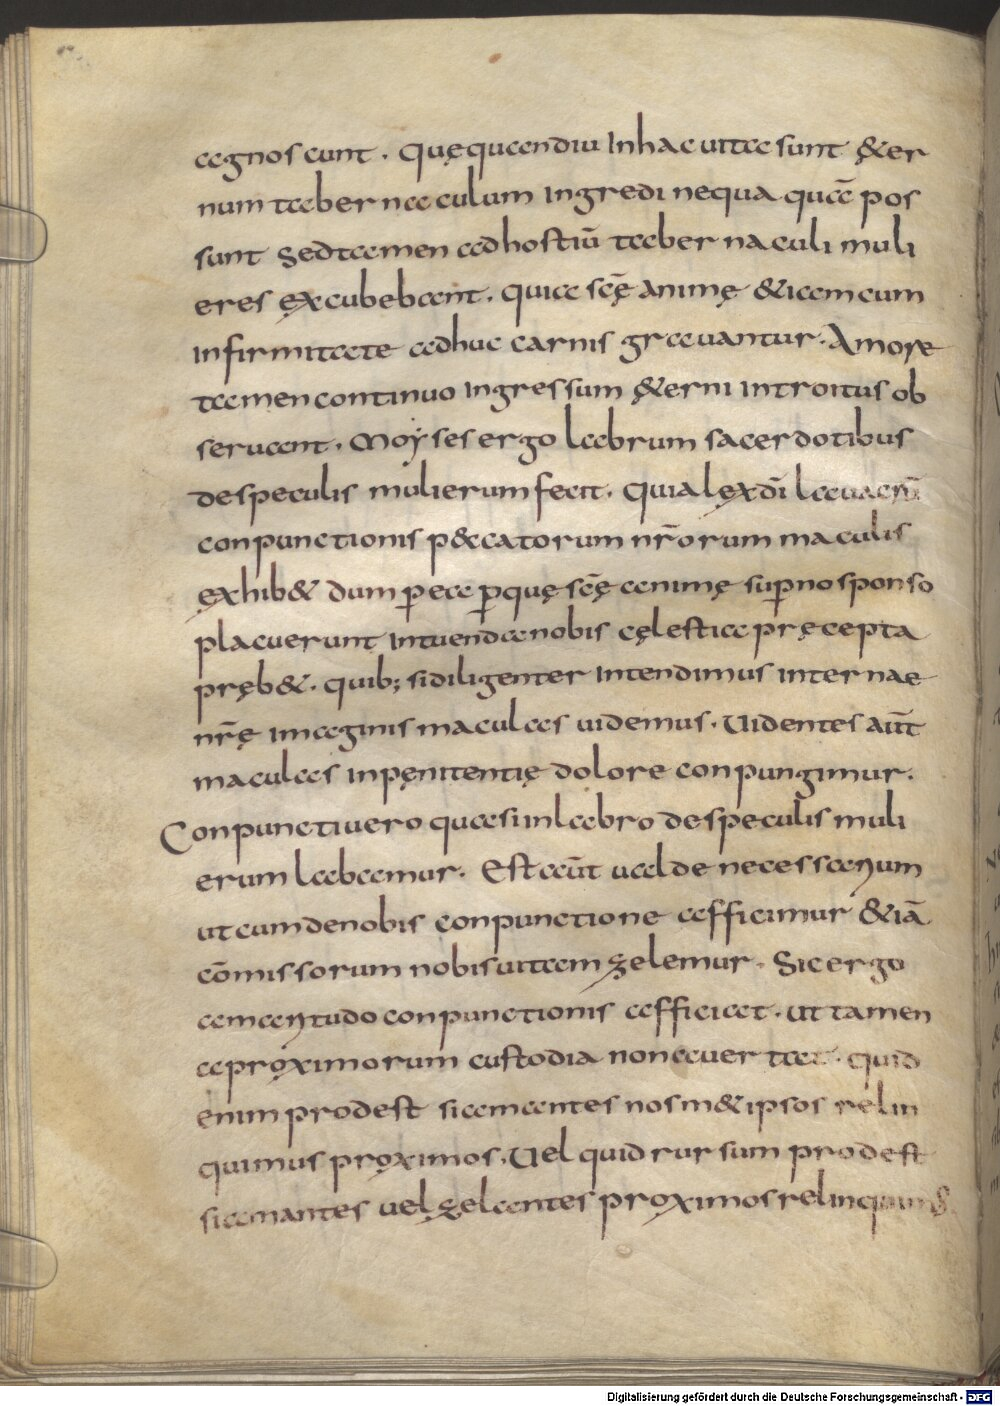 agnoscunt. Quęquandiu inhac uita sunt &er
num tabernaculum ingredi nequa quā pos
sunt Sedtamen adhostiū tabernaculi muli
eres excubebant. quia scę̄ animę &iamcum
infirmitate adhuc carnis grauantur. Amore
tamen continuo ingressum &erni introitus ob
seruant. Moyses ergo labrum sacerdotibus
despeculis mulierum fecit. quia lexdī lauacrū
conpunctionis p&catorum nr̄orum maculis
exhib& dum p̄ ea p̄quę scę̄ animę sup̄no sponso
placuerunt intuenda nobis cęlestia pręcepta
pręb&. quib; sidiligenter intendimus internae
nr̄ę imaginis maculas uidemus. Uidentes aūt
maculas inpęnitentię dolore conpungimur.
Conpuncti uero quasi inlabro despeculis muli
erum labamur. Est aūt ualde necessarium
ut cumdenobis conpunctione afficimur &iā
cōmissorum nobis uitam zelemur. Sic ergo
amaritudo conpunctionis afficiat. ut tamen
aproximorum custodia non auertat. quid
enim prodest siamantes nosm&ipsos relin
quimus proximos. Uel quid rursum prodest
siamantes uel zelantes proximos relinquim&
Digitalisierung gefördert durch die Deutsche Forschungsgemeinschaft - DFG